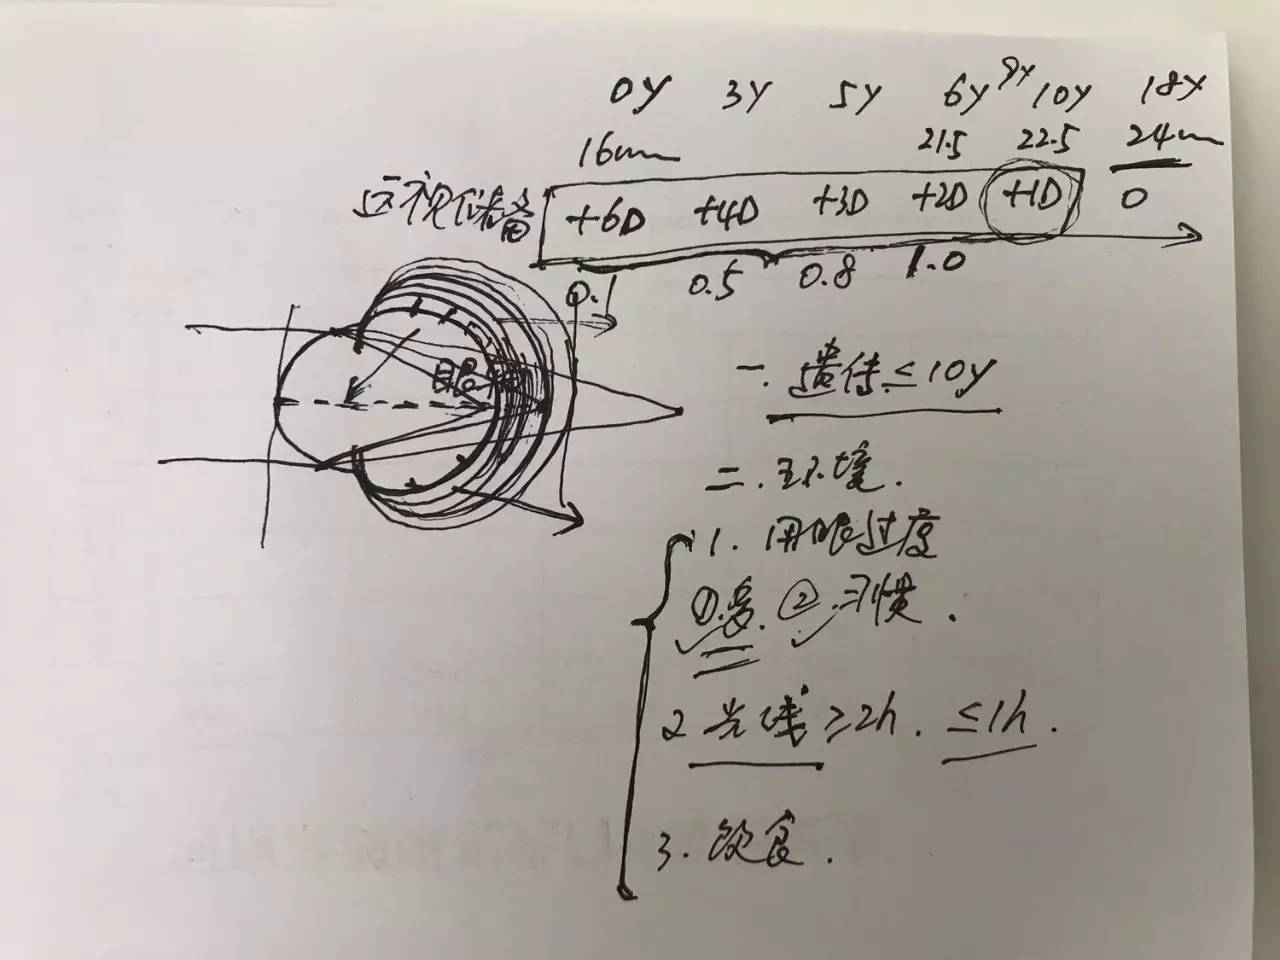 0y 3y 5y 6y 9y 10y 18y
16mm 21.5 22.5 24mm
远视储备 +6D +4D +3D +2D +1D 0
0.1 0.5 0.8 1.0
一. 遗传≤10y
二. 环境.
1. 用眼过度
①多. ②习惯.
2 光线≥2h. ≤1h.
3. 饮食.